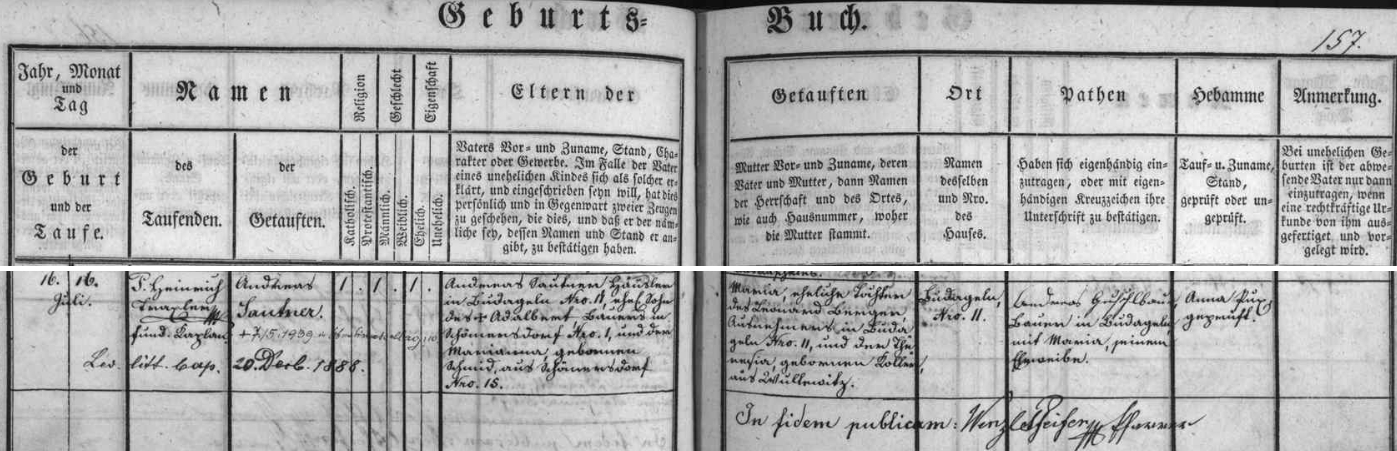 Geburts-
Buch.
157.
Jahr, Monat
und
Tag
der
Geburt
und der
Taufe.
Namen
des
Taufenden.
der
Getauften.
Religion
Katholisch.
Protestantisch.
Geschlecht
Männlich.
Weiblich.
Eigenschaft
Ehelich.
Unehelich.
Eltern der
Vaters Vor- und Zuname, Stand, Cha-
rakter oder Gewerbe. Im Falle der Vater
eines unehelichen Kindes sich als solcher er-
klärt, und eingeschrieben seyn will, hat dies
persönlich und in Gegenwart zweier Zeugen
zu geschehen, die dies, und daß er der näm-
liche sey, dessen Namen und Stand er an-
gibt, zu bestätigen haben.
Getauften
Mutter Vor- und Zuname, deren
Vater und Mutter, dann Namen
der Herrschaft und des Ortes,
wie auch Hausnummer, woher
die Mutter stammt.
Ort
Namen
desselben
und Nro.
des
Hauses.
Pathen
Haben sich eigenhändig ein-
zutragen, oder mit eigen-
händigen Kreuzzeichen ihre
Unterschrift zu bestätigen.
Hebamme
Tauf- u. Zuname,
Stand,
geprüft oder un-
geprüft.
Anmerkung.
Bei unehelichen Ge-
burten ist der abwe-
sende Vater nur dann
einzutragen, wenn
eine rechtkräftige Ur-
kunde von ihm aus-
gefertiget und vor-
gelegt wird.
16. 16.
Juli.
Led.
P. Heinrich
fund. Kaplan
litt. cop.
Andreas
Sautner.
+ 7/5. 1939
20. Decb. 1888.
1. 1. 1.
Andreas Sautner Häusler
in Budageln Nro. 11, ehel. Sohn
des + Adalbert Bauers in
Schömersdorf Nro. 1, und der
Marianna, gebornen
Schmid, aus Schömersdorf
Nro. 15.
Maria, eheliche Tochter
des Leonard Berger,
Ausnehmers in Buda
geln Nro. 11, und der The
resia gebornen Koller,
aus Wullewitz.
Budageln,
Nro. 11.
Andreas
Bauer in Budageln
mit Maria, seinem
Eheweibe.
Anna
geprüft.
In fidem publicam: Wenzl Pfeifer Pfarrer